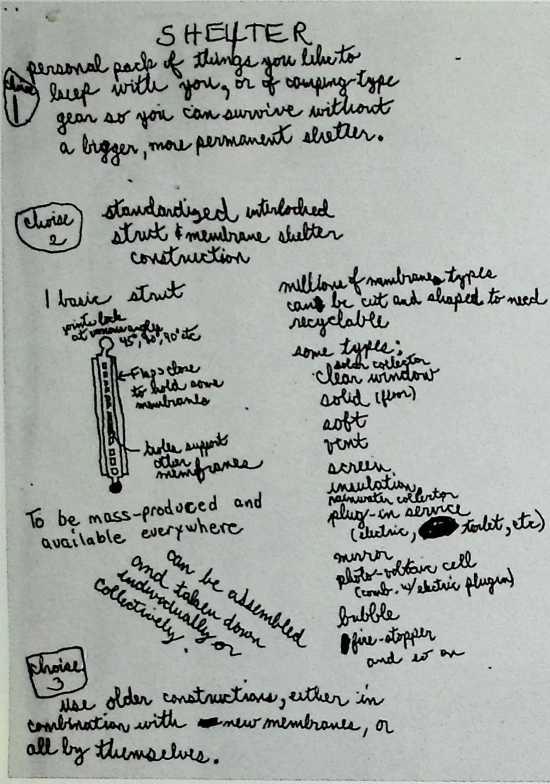 SHELTER
choise 1
personal pack of things you like to
keep with you, or of camping-type
gear so you can survive without
a bigger, more permanent shelter.
choise 2
standardized interlocked
strut & membrane shelter
construction
1 basic strut
joint lock
at various angles
45°, 60°, 90° etc
Flaps close
to hold some
membranes
holes support
other
membranes
To be mass-produced and
available everywhere
can be assembled
and taken down
individually or
collectively.
millions of membrane types
can be cut and shaped to need
recyclable
some types:
solar collector
clear window
solid (firm)
soft
vent
screen
insulation
rainwater collector
plug-in service
(electric, toilet, etc)
mirror
photo-voltaic cell
(comb. w/ electric plugin)
bubble
fire-stopper
and so on
choise 3
use older constructions, either in
combination with new membranes, or
all by themselves.